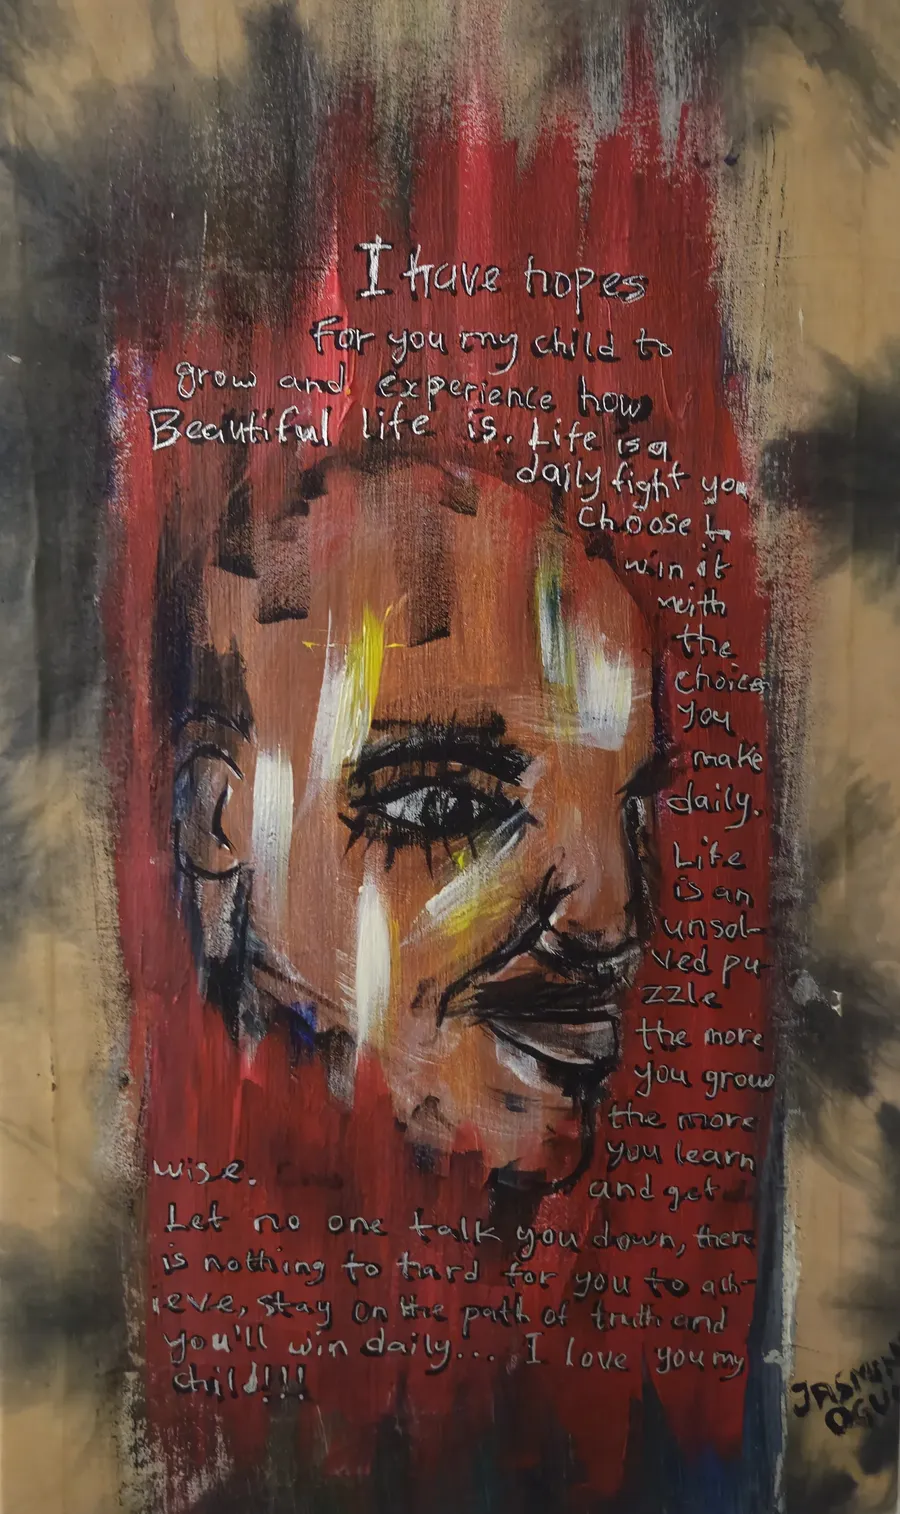 I have hopes
For you my child to
grow and experience how
Beautiful life is. Life is a
daily fight you
choose to
win it
with
the
choices
you
make
daily.
Life
is an
unsol-
ved pu-
zzle
the more
you grow
the more
you learn
and get
wise.
Let no one talk you down, there
is nothing to hard for you to ach-
ieve, stay on the path of truth and
you'll win daily... I love you my
child!!!
JASMIN